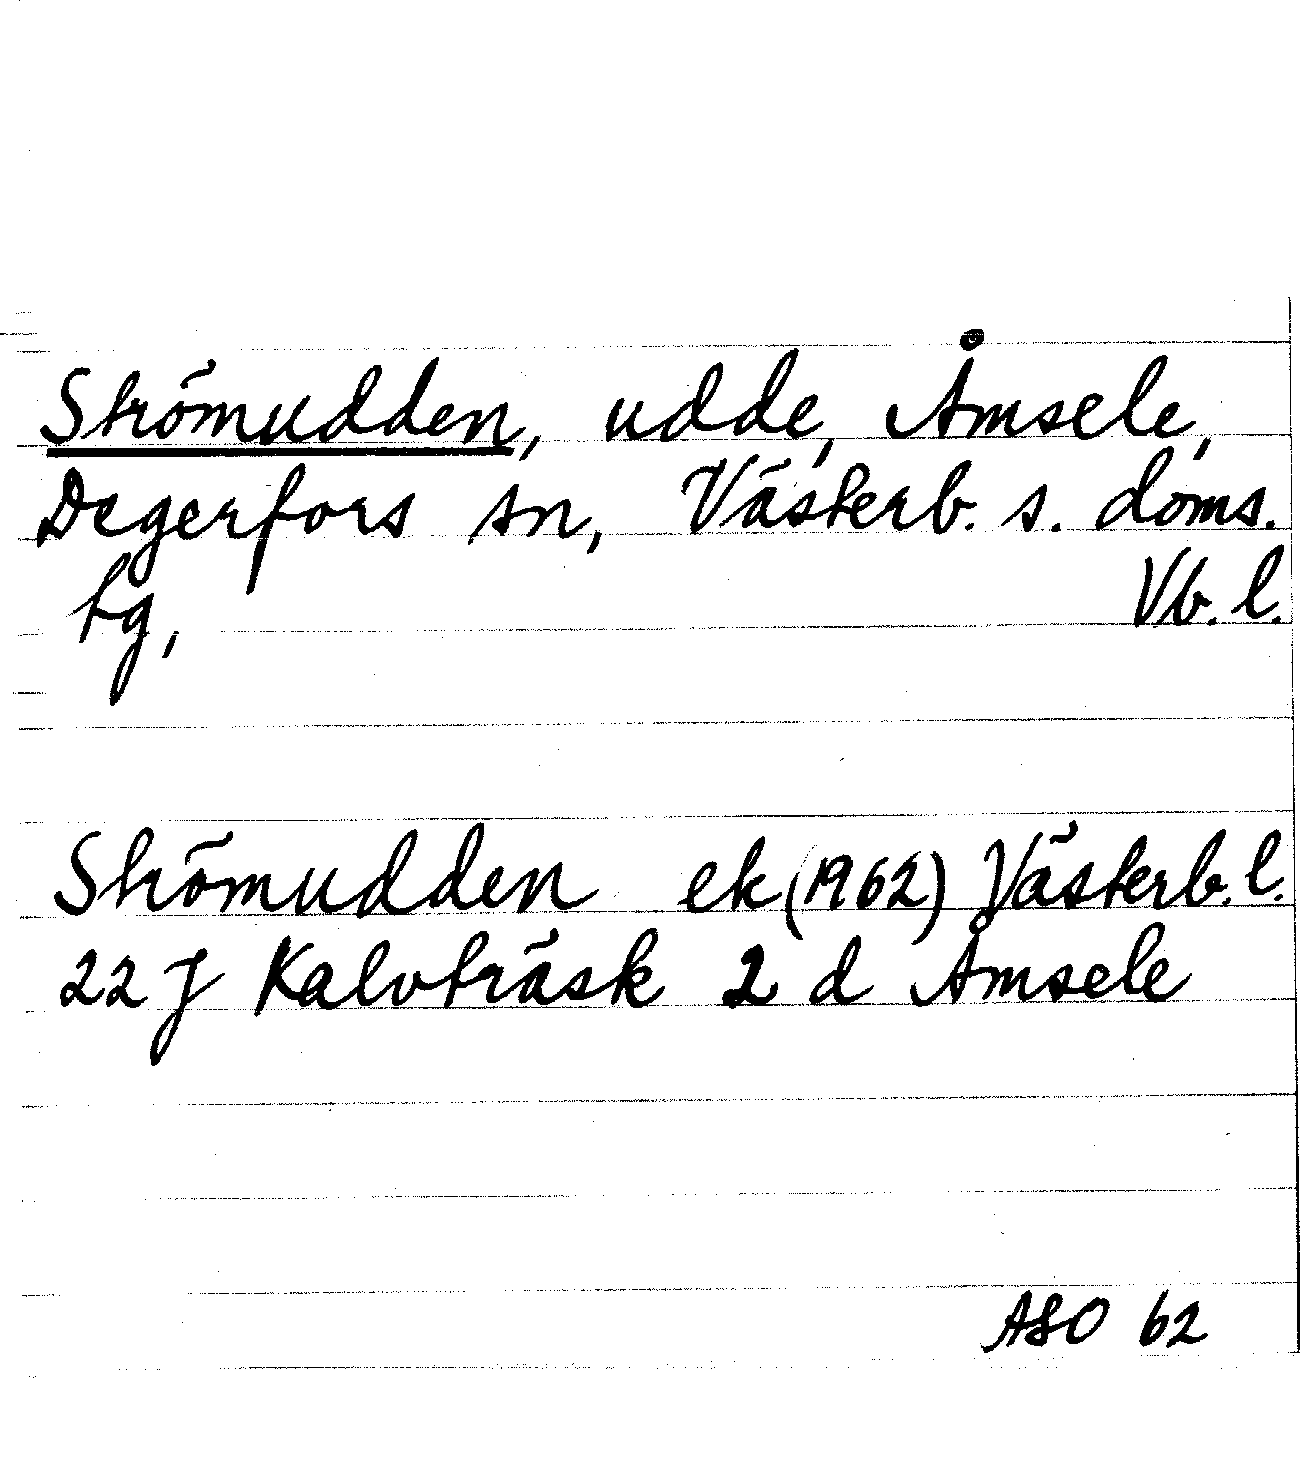 Strömudden, udde, Åmsele,
Degerfors sn, Västerb. s. doms.
tg, Vb. l.
Strömudden ek (1962) Västerb. l.
22 J Kalvträsk 2 d Åmsele
ASO 62